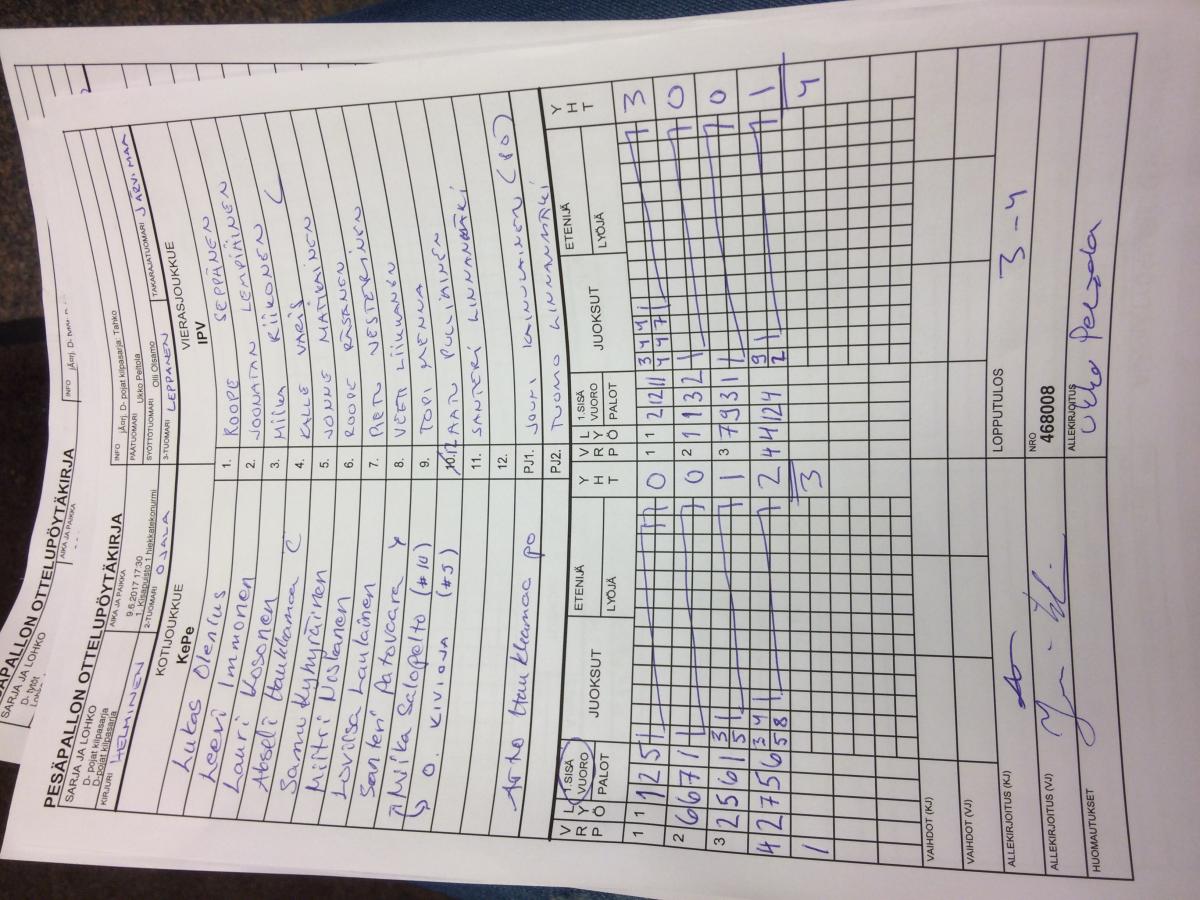 PESÄPALLON OTTELUPÖYTÄKIRJA
SARJA JA LOHKO
D- tytöt
AIKA JA PAIKKA
INFO
PESÄPALLON OTTELUPÖYTÄKIRJA
SARJA JA LOHKO
D- pojat kilpasarja
D-pojat kilpasarja
AIKA JA PAIKKA
9.6.2017 17:30
1. Kisapuisto 1 hiekkatekonurmi
INFO jÄorj. D- pojat kilpasarja: Tahko
PÄÄTUOMARI Ukko Peltola
SYÖTTÖTUOMARI Olli Olsamo
KIRJURI HELMINEN
2-TUOMARI OJALA
3-TUOMARI LEPPÄNEN
TAKARAJATUOMARI JÄRVIMAA
KOTIJOUKKUE
KePe
VIERASJOUKKUE
IPV
Lukas Olenius 1. ROOPE SEPPÄNEN
Leevi Immonen 2. JOONATAN LEMPIÄINEN
Lauri Kosonen 3. MIIKA KIIKONEN C
Akseli Haukkamaa C 4. KALLE VARIS
Samu Kyhyräinen 5. JONNE MATIKAINEN
Miitri Noskanen 6. ROOPE RÄSÄNEN
Loviisa Laulainen 7. AREN VESTERINEN
Santeri Patovaara 8. VEETI LIIKKANEN
Miika Salopelto (#10) 9. TOPI MENNA
O. KIVIOJA (#5) 10. 12. AATU PULLIAINEN
11. SANTERI LINNANMÄKI
12.
Arto Haukkamaa PJ PJ1. JOUNI KAINULAINEN (80)
PJ2. TUOMO LINNANMÄKI
V R P L Y Ö 1.SISÄ VUORO PALOT JUOKSUT ETENIJÄ LYÖJÄ Y H T V R P L Y Ö 1.SISÄ VUORO PALOT JUOKSUT ETENIJÄ LYÖJÄ Y H T
1 1 1 2 5 0 1 1 2 12 11 3 4 4 3
4 4 7
2 6 6 7 1 0 2 1 1 3 2 0
3 2 5 6 1 3 1 3 7 9 3 1 0
5
4 2 7 5 6 3 4 2 2 4 4 12 4 9 1
5 8 2
1 3 4
VAIHDOT (KJ)
VAIHDOT (VJ)
ALLEKIRJOITUS (KJ)
LOPPUTULOS 3-4
ALLEKIRJOITUS (VJ)
NRO
468008
HUOMAUTUKSET
ALLEKIRJOITUS
Ukko Peltola